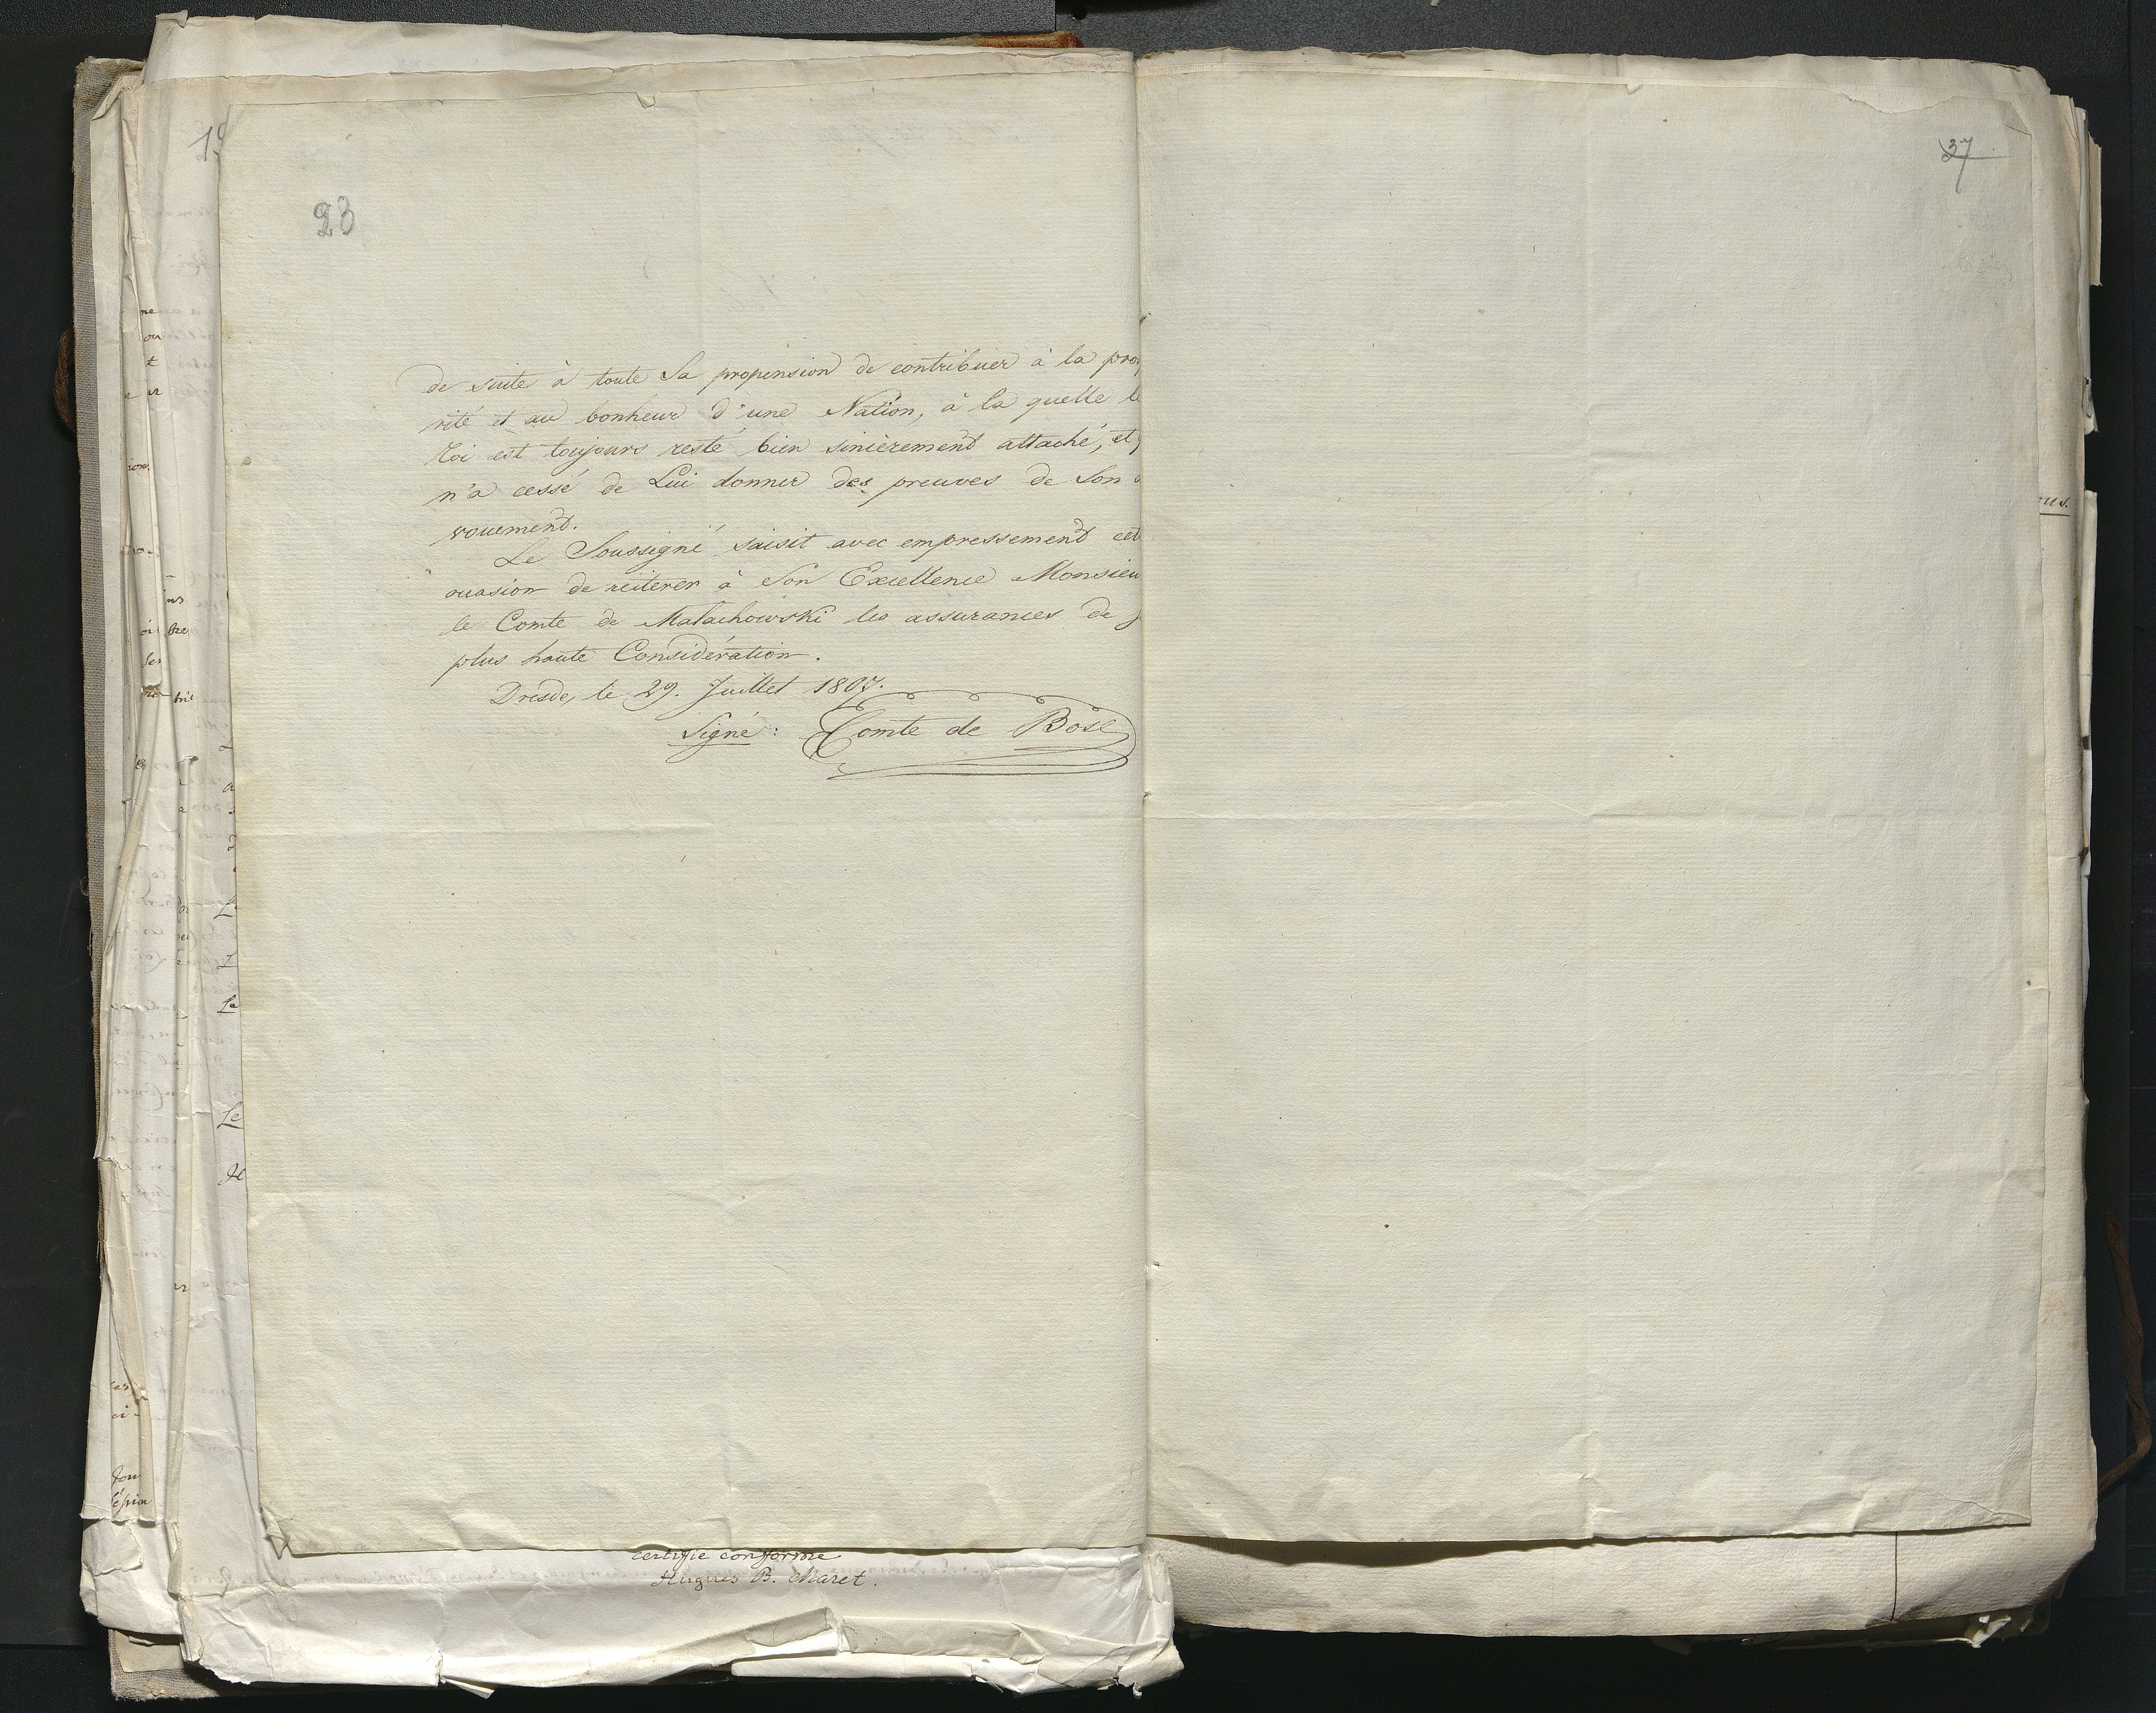 23
37
de suite à toute Sa propension de contribuer à la pro
rité et au bonheur d'une Nation, à la quelle le
Roi est toujours resté bien sincèrement attaché, et
n'a cessé de Lui donner des preuves de Son
vouement.
Le Soussigné saisit avec empressement cet
ocasion de reiterer à Son Excellence Monsieu
le Comte de Malachowski les assurances de
plus haute Considération.
Dresde, le 29. Juillet 1807.
Signé: Comte de Bose
certifie conforme
Hugues B. Maret.